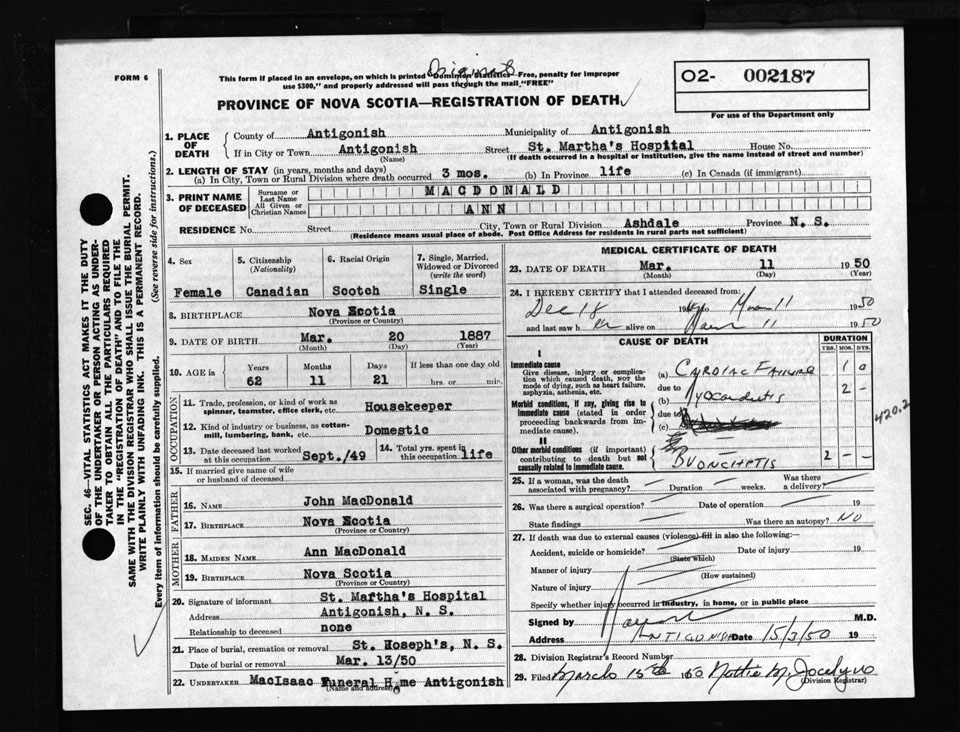 Original
FORM 6
This form if placed in an envelope, on which is printed "Dominion Statistics—Free, penalty for improper
use $300," and properly addressed will pass through the mail "FREE"
O2- 002187
For use of the Department only
PROVINCE OF NOVA SCOTIA—REGISTRATION OF DEATH
1. PLACE OF DEATH
County of Antigonish Municipality of Antigonish
If in City or Town Antigonish Street St. Martha's Hospital House No.
(Name) (If death occurred in a hospital or institution, give the name instead of street and number)
2. LENGTH OF STAY (in years, months and days)
(a) In City, Town or Rural Division where death occurred 3 mos. (b) In Province life (c) In Canada (if immigrant)
3. PRINT NAME OF DECEASED
Surname or Last Name MACDONALD
All Given or Christian Names ANN
RESIDENCE No. Street City, Town or Rural Division Ashdale Province N. S.
(Residence means usual place of abode. Post Office Address for residents in rural parts not sufficient)
4. Sex Female
5. Citizenship (Nationality) Canadian
6. Racial Origin Scotch
7. Single, Married, Widowed or Divorced (write the word) Single
8. BIRTHPLACE Nova Scotia
(Province or Country)
9. DATE OF BIRTH Mar. 20 1887
(Month) (Day) (Year)
10. AGE in Years Months Days If less than one day old
62 11 21 hrs. or min.
OCCUPATION
11. Trade, profession, or kind of work as spinner, teamster, office clerk, etc. Housekeeper
12. Kind of industry or business, as cotton-mill, lumbering, bank, etc. Domestic
13. Date deceased last worked at this occupation Sept./49
14. Total yrs. spent in this occupation life
15. If married give name of wife or husband of deceased
FATHER
16. NAME John MacDonald
17. BIRTHPLACE Nova Scotia
(Province or Country)
MOTHER
18. MAIDEN NAME Ann MacDonald
19. BIRTHPLACE Nova Scotia
(Province or Country)
20. Signature of informant St. Martha's Hospital
Address Antigonish, N. S.
Relationship to deceased none
21. Place of burial, cremation or removal St. Hoseph's, N. S.
Date of burial or removal Mar. 13/50
22. UNDERTAKER MacIsaac Funeral Home Antigonish
(Name and address)
MEDICAL CERTIFICATE OF DEATH
23. DATE OF DEATH Mar. 11 1950
(Month) (Day) (Year)
24. I HEREBY CERTIFY that I attended deceased from:
Dec 18 19 to 11 1950
and last saw h er alive on 11 1950
CAUSE OF DEATH
DURATION
YRS. MOS. DYS.
I
Immediate cause
Give disease, injury or complication which caused death, not the mode of dying, such as heart failure, asphyxia, asthenia, etc.
(a) CARDIAC FAILURE 1 0
due to
Morbid conditions, if any, giving rise to immediate cause (stated in order proceeding backwards from immediate cause).
(b) Myocarditis 2 -
due to
(c)
420.2
II
Other morbid conditions (if important) contributing to death but not causally related to immediate cause.
BRONCHITIS 2 - -
25. If a woman, was the death associated with pregnancy? Duration weeks. Was there a delivery?
26. Was there a surgical operation? Date of operation 19
State findings Was there an autopsy? NO
27. If death was due to external causes (violence) fill in also the following:—
Accident, suicide or homicide? Date of injury 19
(State which)
Manner of injury
(How sustained)
Nature of injury
Specify whether injury occurred in industry, in home, or in public place
Signed by M.D.
Address ANTIGONISH Date 15/3/50 19
28. Division Registrar's Record Number
29. Filed March 15th 1950 Mattie M. Jocelyn
(Division Registrar)
SEC. 46—VITAL STATISTICS ACT MAKES IT THE DUTY
OF THE UNDERTAKER OR PERSON ACTING AS UNDER-
TAKER TO OBTAIN ALL THE PARTICULARS REQUIRED
IN THE "REGISTRATION OF DEATH" AND TO FILE THE
SAME WITH THE DIVISION REGISTRAR WHO SHALL ISSUE THE BURIAL PERMIT.
WRITE PLAINLY WITH UNFADING INK. THIS IS A PERMANENT RECORD.
Every item of information should be carefully supplied. (See reverse side for instructions.)